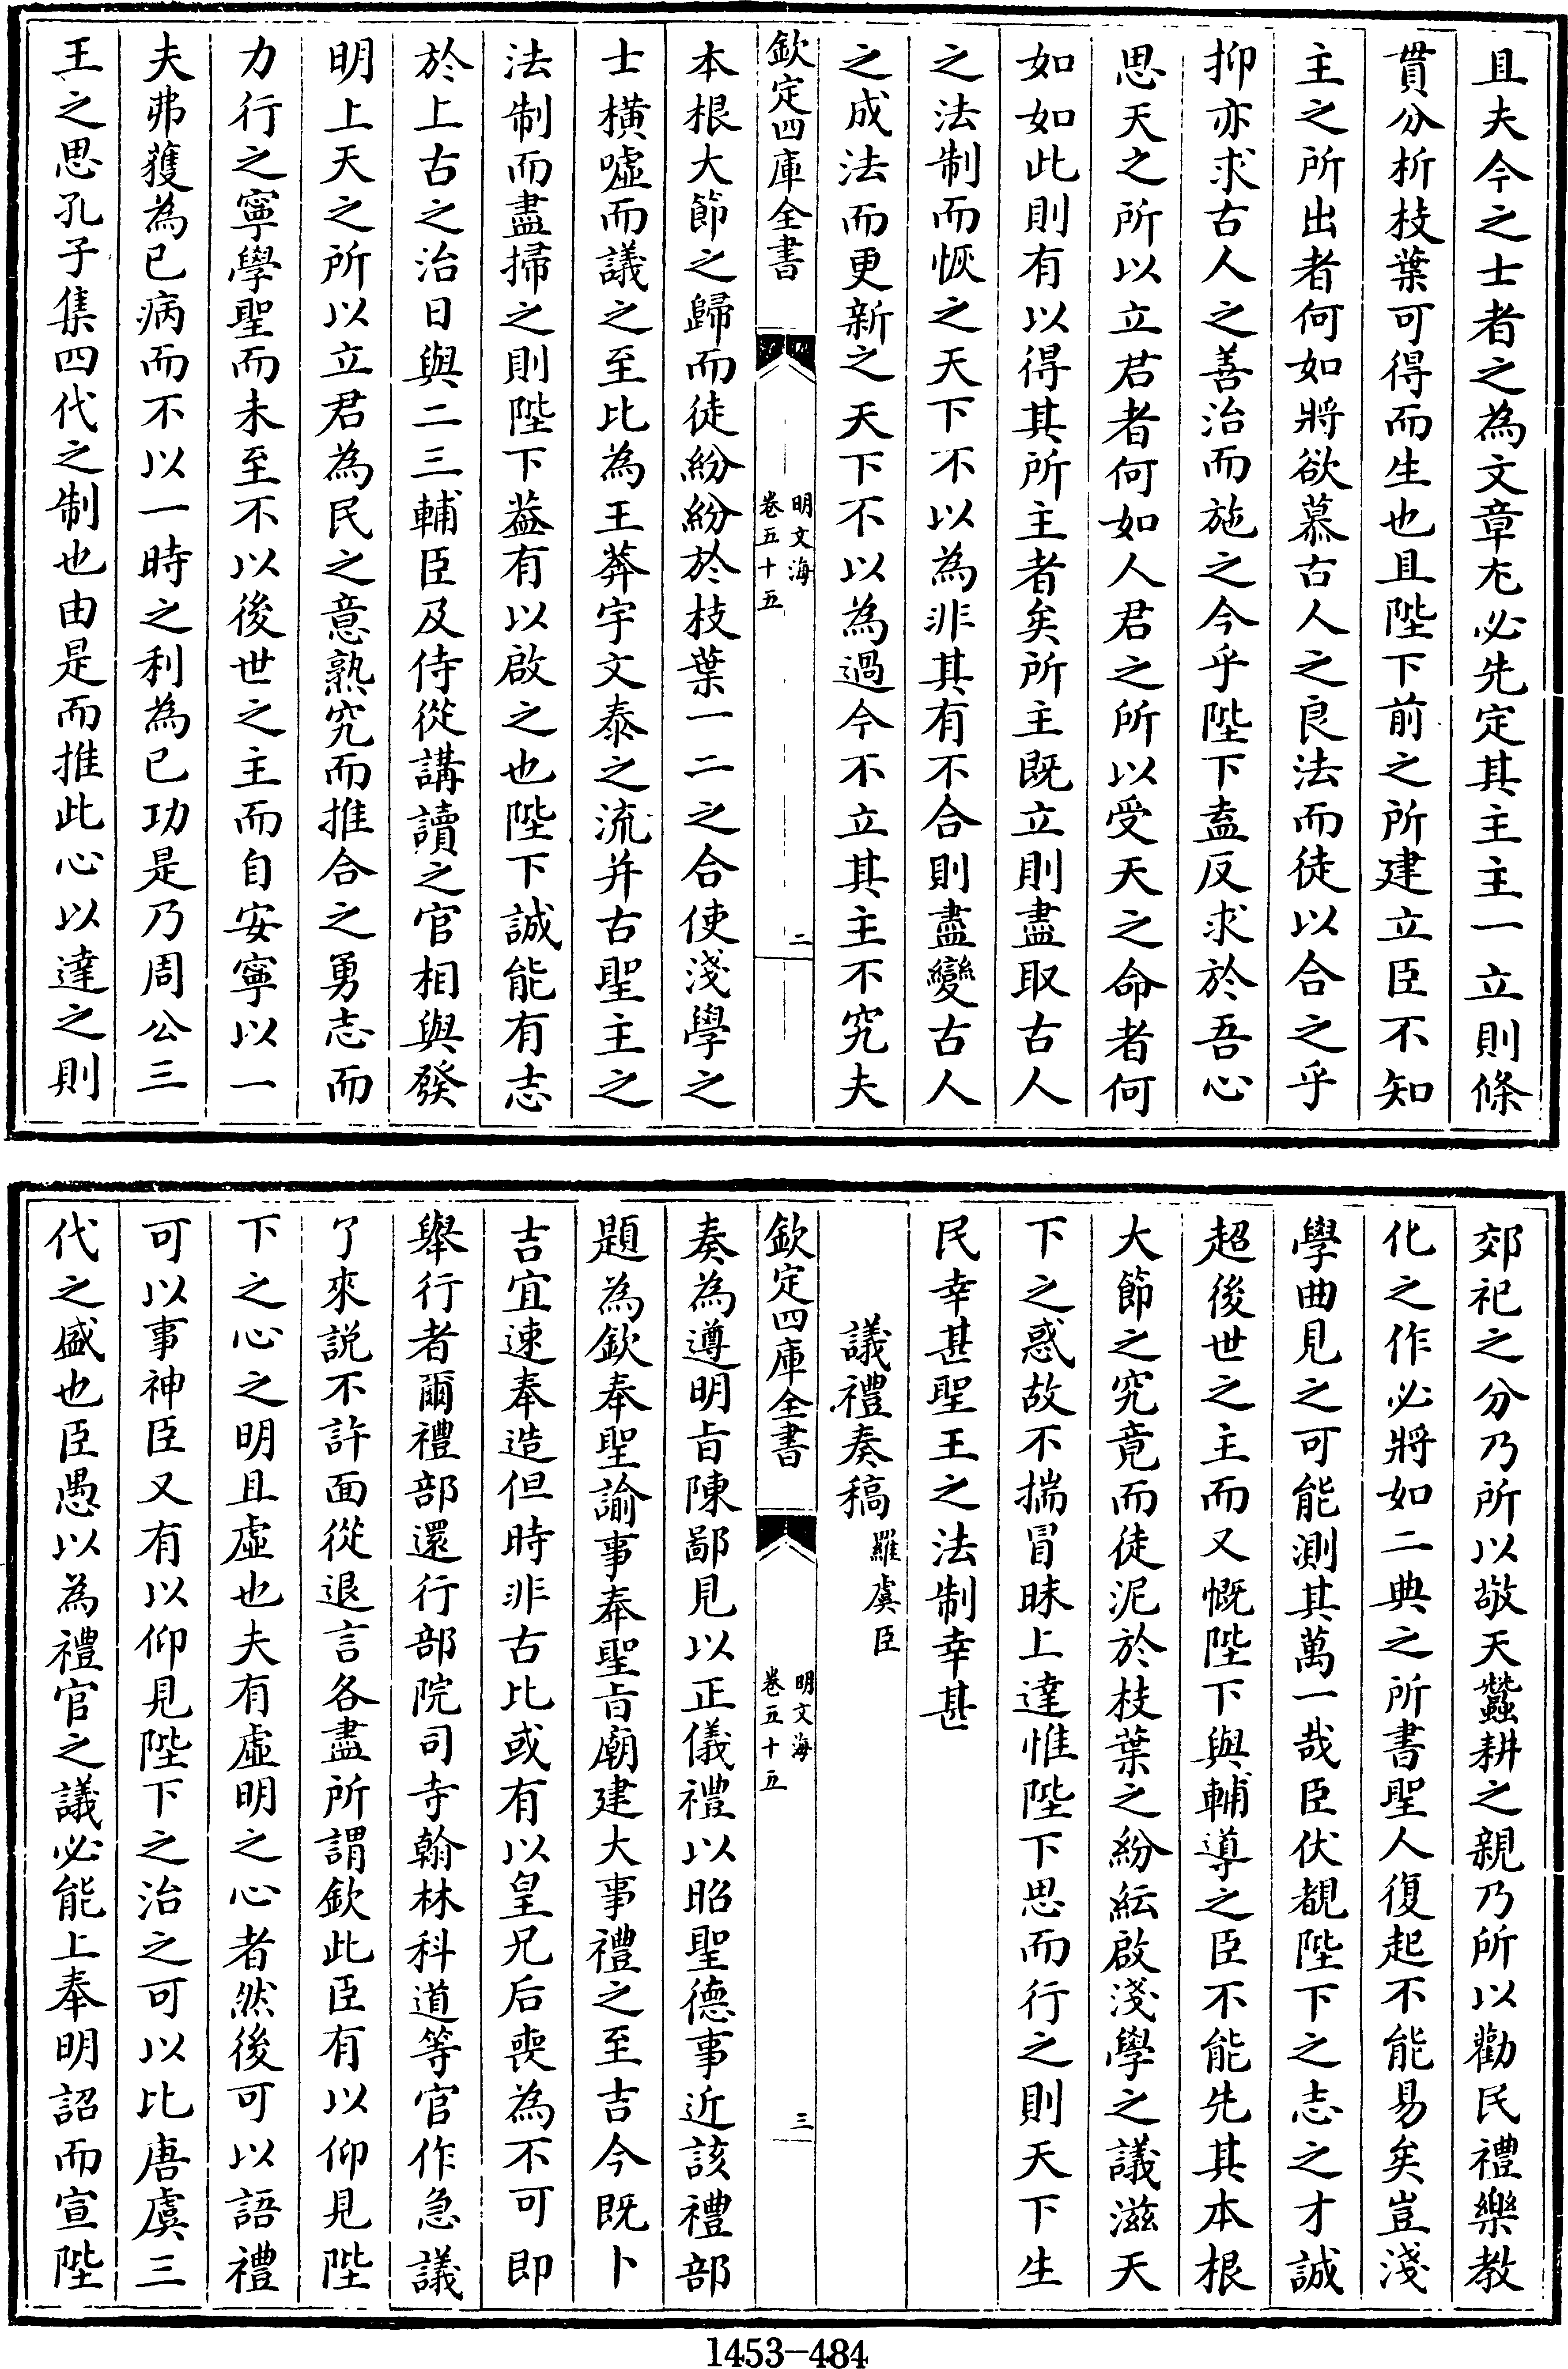 且夫今之士者之為文章尢必先定其主主一立則條
貫分析枝葉可得而生也且陛下前之所建立臣不知
主之所出者何如將欲慕古人之良法而徒以合之乎
抑亦求古人之善治而施之今乎陛下盍反求於吾心
思天之所以立君者何如人君之所以受天之命者何
如如此則有以得其所主者矣所主既立則盡取古人
之法制而恢之天下不以為非其有不合則盡變古人
之成法而更新之天下不以為過今不立其主不究夫
欽定四庫全書
明文海
卷五十五
二
本根大節之歸而徒紛紛於枝葉一二之合使淺學之
士橫噓而議之至比為王莽宇文泰之流并古聖主之
法制而盡掃之則陛下葢有以啟之也陛下誠能有志
於上古之治日與二三輔臣及侍從講讀之官相與發
明上天之所以立君為民之意熟究而推合之勇志而
力行之寧學聖而未至不以後世之主而自安寧以一
夫弗獲為已病而不以一時之利為已功是乃周公三
王之思孔子集四代之制也由是而推此心以達之則
郊祀之分乃所以敬天蠶耕之親乃所以勸民禮樂教
化之作必將如二典之所書聖人復起不能易矣豈淺
學曲見之可能測其萬一哉臣伏覩陛下之志之才誠
超後世之主而又慨陛下與輔導之臣不能先其本根
大節之究竟而徒泥於枝葉之紛紜啟淺學之議滋天
下之惑故不揣冒昧上達惟陛下思而行之則天下生
民幸甚聖王之法制幸甚
議禮奏稿 羅虞臣
欽定四庫全書
明文海
卷五十五
三
奏為遵明旨陳鄙見以正儀禮以昭聖德事近該禮部
題為欽奉聖諭事奉聖旨廟建大事禮之至吉今既卜
吉宜速奉造但時非古比或有以皇兄后喪為不可即
舉行者爾禮部還行部院司寺翰林科道等官作急議
了來說不許面從退言各盡所謂欽此臣有以仰見陛
下之心之明且虛也夫有虛明之心者然後可以語禮
可以事神臣又有以仰見陛下之治之可以比唐虞三
代之盛也臣愚以為禮官之議必能上奉明詔而宣陛
1453-484